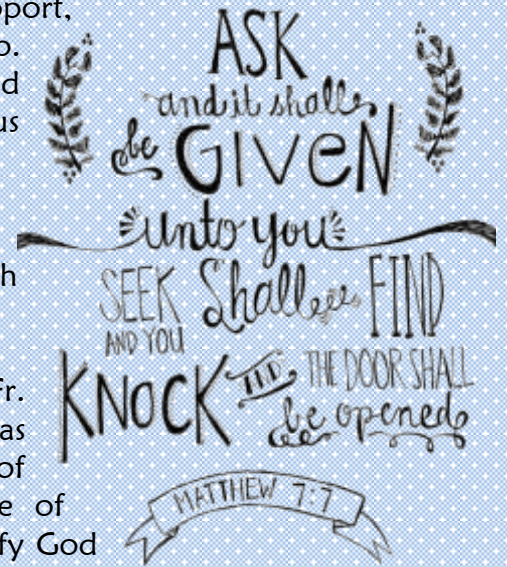 pport,
o.
d
us
h
Fr.
as
of
e of
fy God
ASK
and it shall
be GIVEN
unto you
SEEK Shall FIND
AND YOU
KNOCK AND THE DOOR SHALL
be opened
MATTHEW 7:7